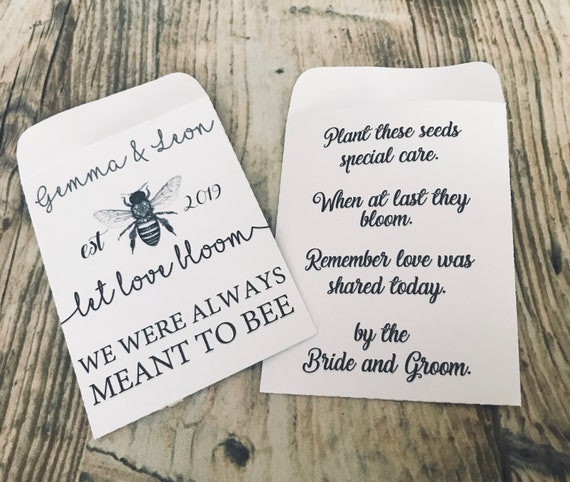 Gemma & Leon
est 2019
let love bloom
WE WERE ALWAYS
MEANT TO BEE
Plant these seeds
special care.
When at last they
bloom.
Remember love was
shared today.
by the
Bride and Groom.